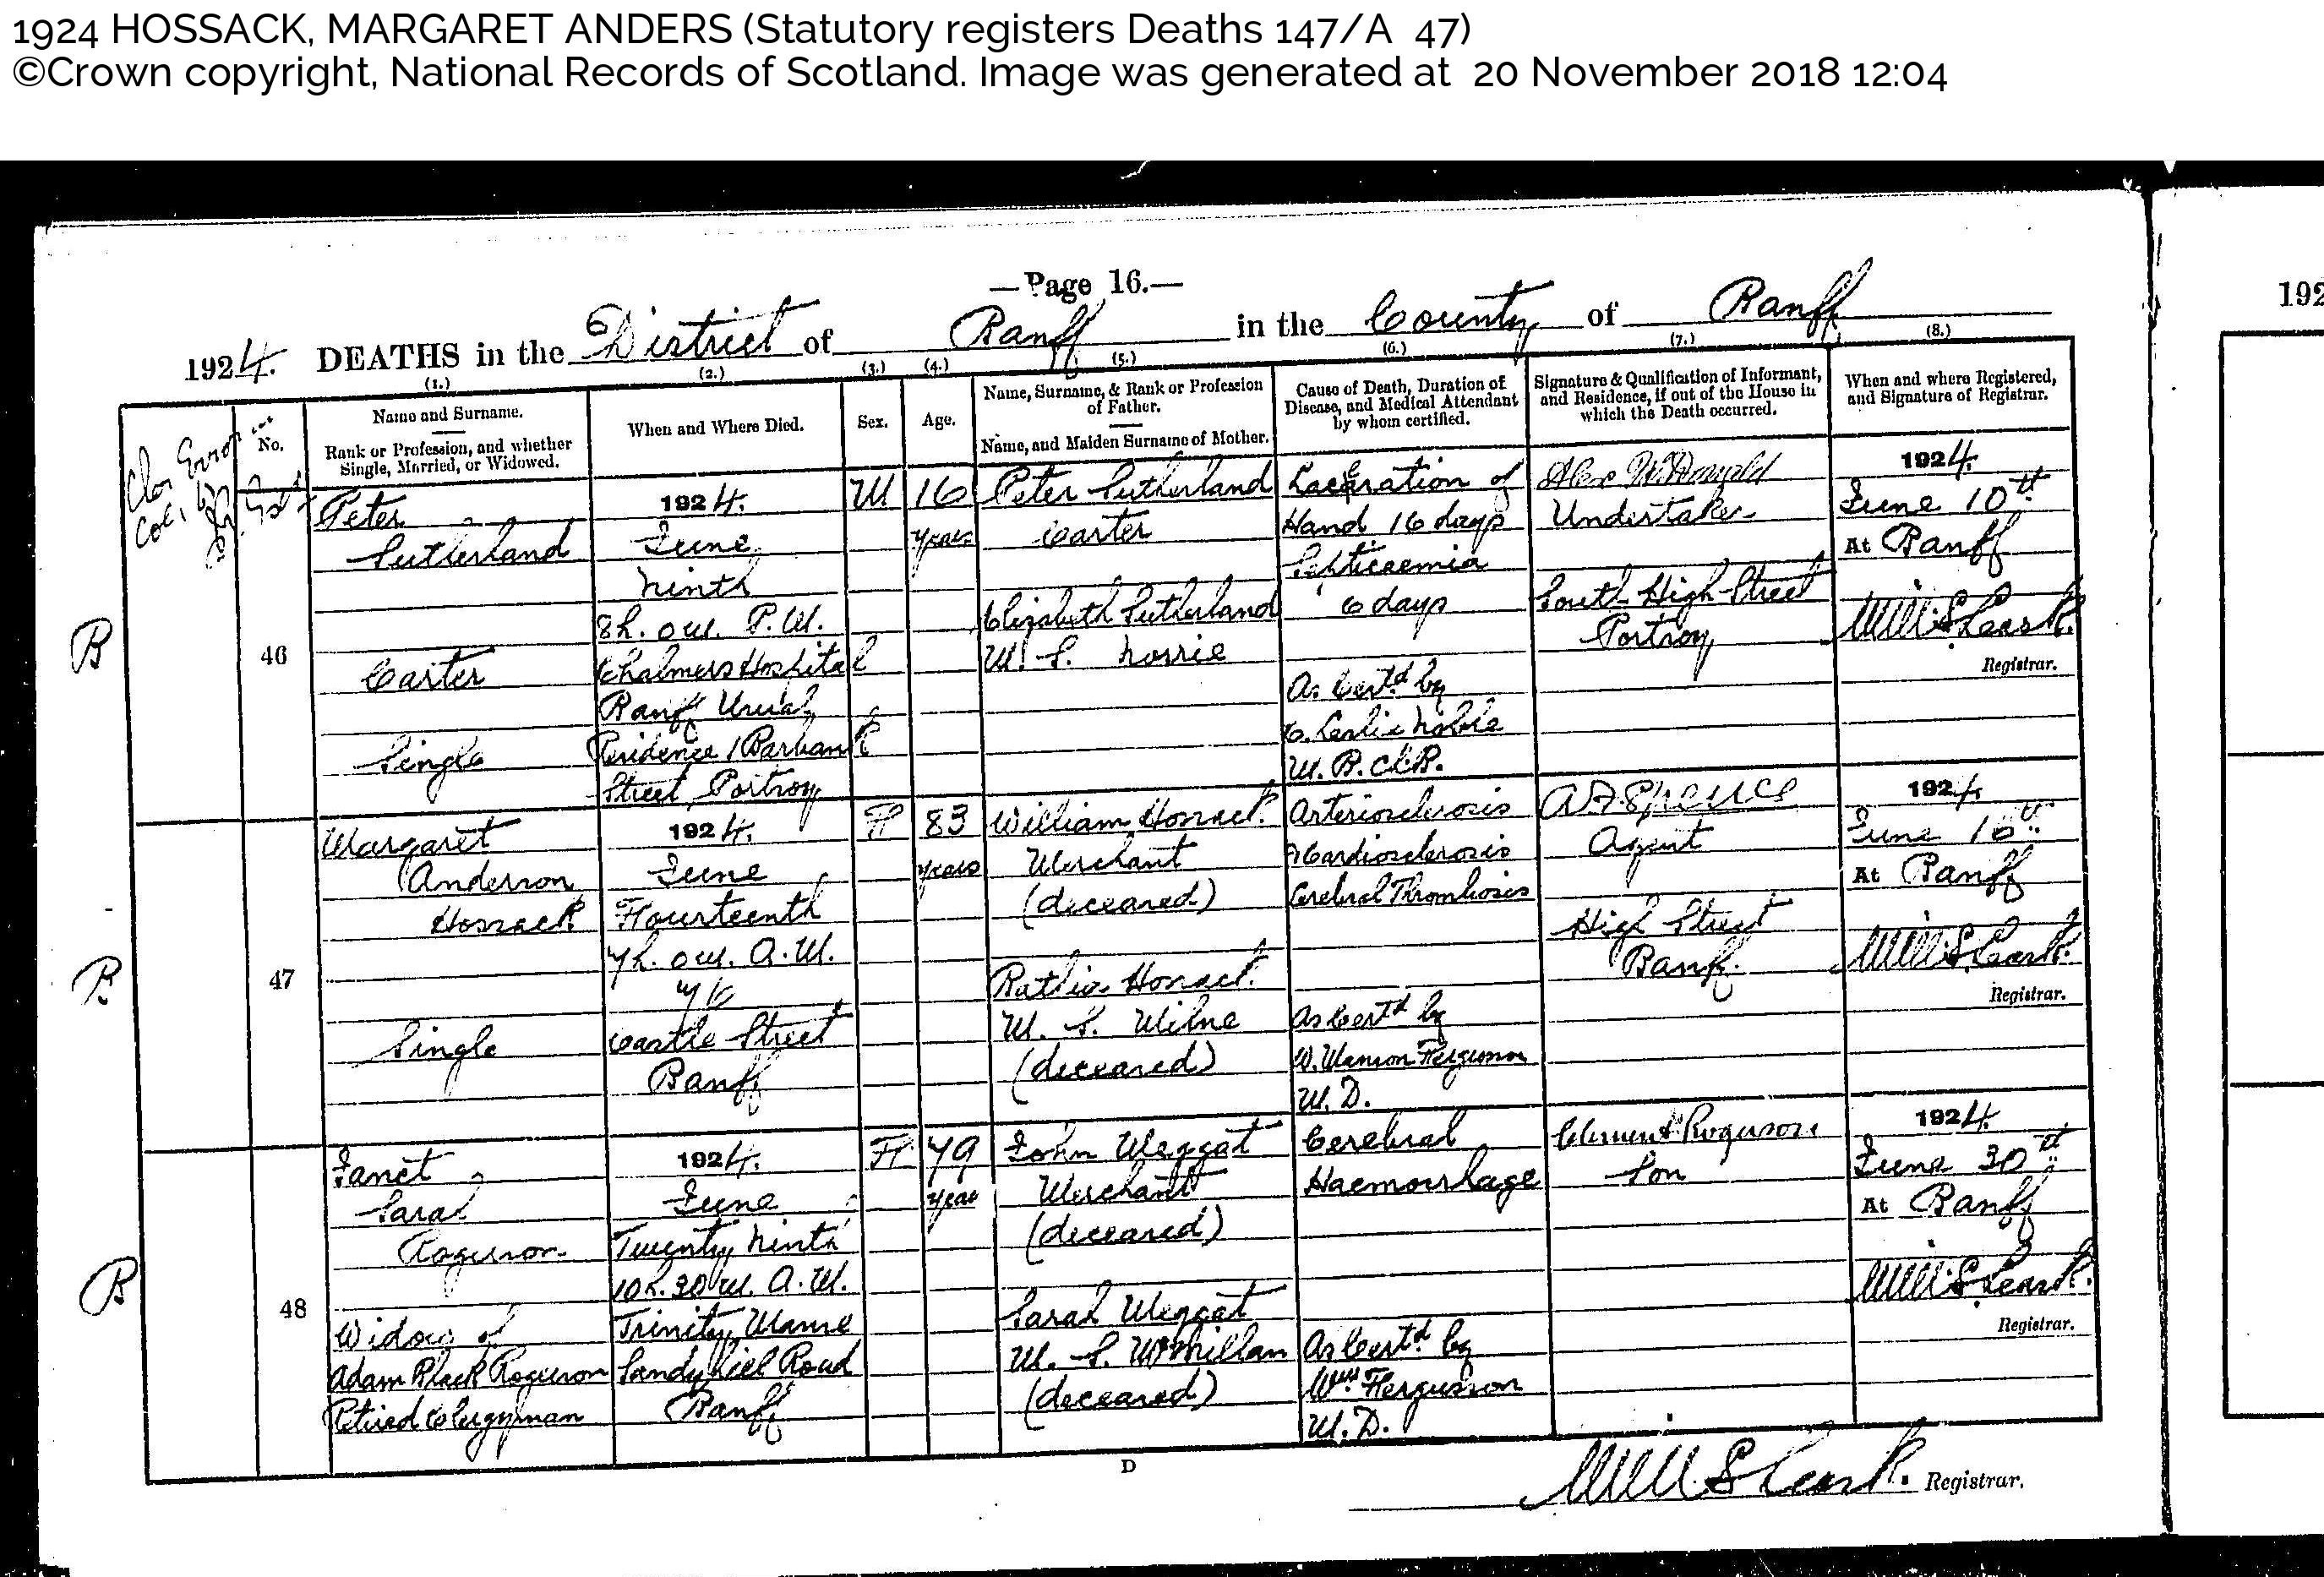 1924 HOSSACK, MARGARET ANDERS (Statutory registers Deaths 147/A 47)
©Crown copyright, National Records of Scotland. Image was generated at 20 November 2018 12:04
—Page 16.—
1924. DEATHS in the District of Banff in the County of Banff
(1.) (2.) (3.) (4.) (5.) (6.) (7.) (8.)
No.
Name and Surname.
Rank or Profession, and whether
Single, Married, or Widowed.
When and Where Died.
Sex.
Age.
Name, Surname, & Rank or Profession
of Father.
Name, and Maiden Surname of Mother.
Cause of Death, Duration of
Disease, and Medical Attendant
by whom certified.
Signature & Qualification of Informant,
and Residence, if out of the House in
which the Death occurred.
When and where Registered,
and Signature of Registrar.
Error
B
46
Peter
Sutherland
Carter
Single
1924.
June
Ninth
8h. 0m. P.M.
Chalmers Hospital
Banff Usual
Residence 1 Barbank
Street, Portsoy
M
16
years
Peter Sutherland
Carter
Elizabeth Sutherland
M. S. Norrie
Laceration of
Hand 16 days
Septicaemia
6 days
As Certd by
C. Leslie Noble
M.B. Ch.B.
Undertaker
South High Street
Portsoy
1924.
June 10th
At Banff
Registrar.
B
47
Margaret
Anderson
Hossack
Single
1924.
June
Fourteenth
7h. 0m. A.M.
Castle Street
Banff
F
83
years
William Hossack
Merchant
(deceased)
Rathia Hossack
M. S. Milne
(deceased)
Arteriosclerosis
Cardiosclerosis
Cerebral Thrombosis
As Certd by
W. Manson Fergusson
M.D.
A. F. Spence
Agent
High Street
Banff.
1924.
June 16th
At Banff
Registrar.
B
48
Janet
Sarah
Rogerson
Widow of
Adam Black Rogerson
Retired Clergyman
1924.
June
Twenty Ninth
10h. 30m. A.M.
Trinity Manse
Sandyhill Road
Banff
F
79
years
John Meggat
Merchant
(deceased)
Sarah Meggat
M. S. McMillan
(deceased)
Cerebral
Haemorrhage
As Certd by
Wm Fergusson
M.D.
Clement Rogerson
Son
1924.
June 30th
At Banff
Registrar.
D
Registrar.
192